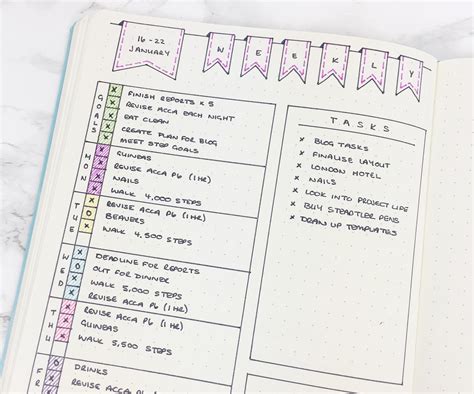 16-22
JANUARY
WEEKLY
GOALS
x FINISH REPORTS x 5
x REVISE ACCA EACH NIGHT
x EAT CLEAN
x CREATE PLAN FOR BLOG
x MEET STEP GOALS
MON
x GUINEAS
x REVISE ACCA P6 (1 HR)
x NAILS
x WALK 4,000 STEPS
TUE
x REVISE ACCA P6 (1 HR)
O BEAVERS
x WALK 4,500 STEPS
WED
x DEADLINE FOR REPORTS
O OUT FOR DINNER
x WALK 5,000 STEPS
x REVISE ACCA P6 (1 HR)
THU
x REVISE ACCA P6 (1 HR)
x GUINEAS
x WALK 5,500 STEPS
FR
O DRINKS
x REVISE ACCA P6
TASKS
x BLOG TASKS
x FINALISE LAYOUT
x LONDON HOTEL
x NAILS
x LOOK INTO PROJECT LIFE
x BUY STEADTLER PENS
x DRAW UP TEMPLATES